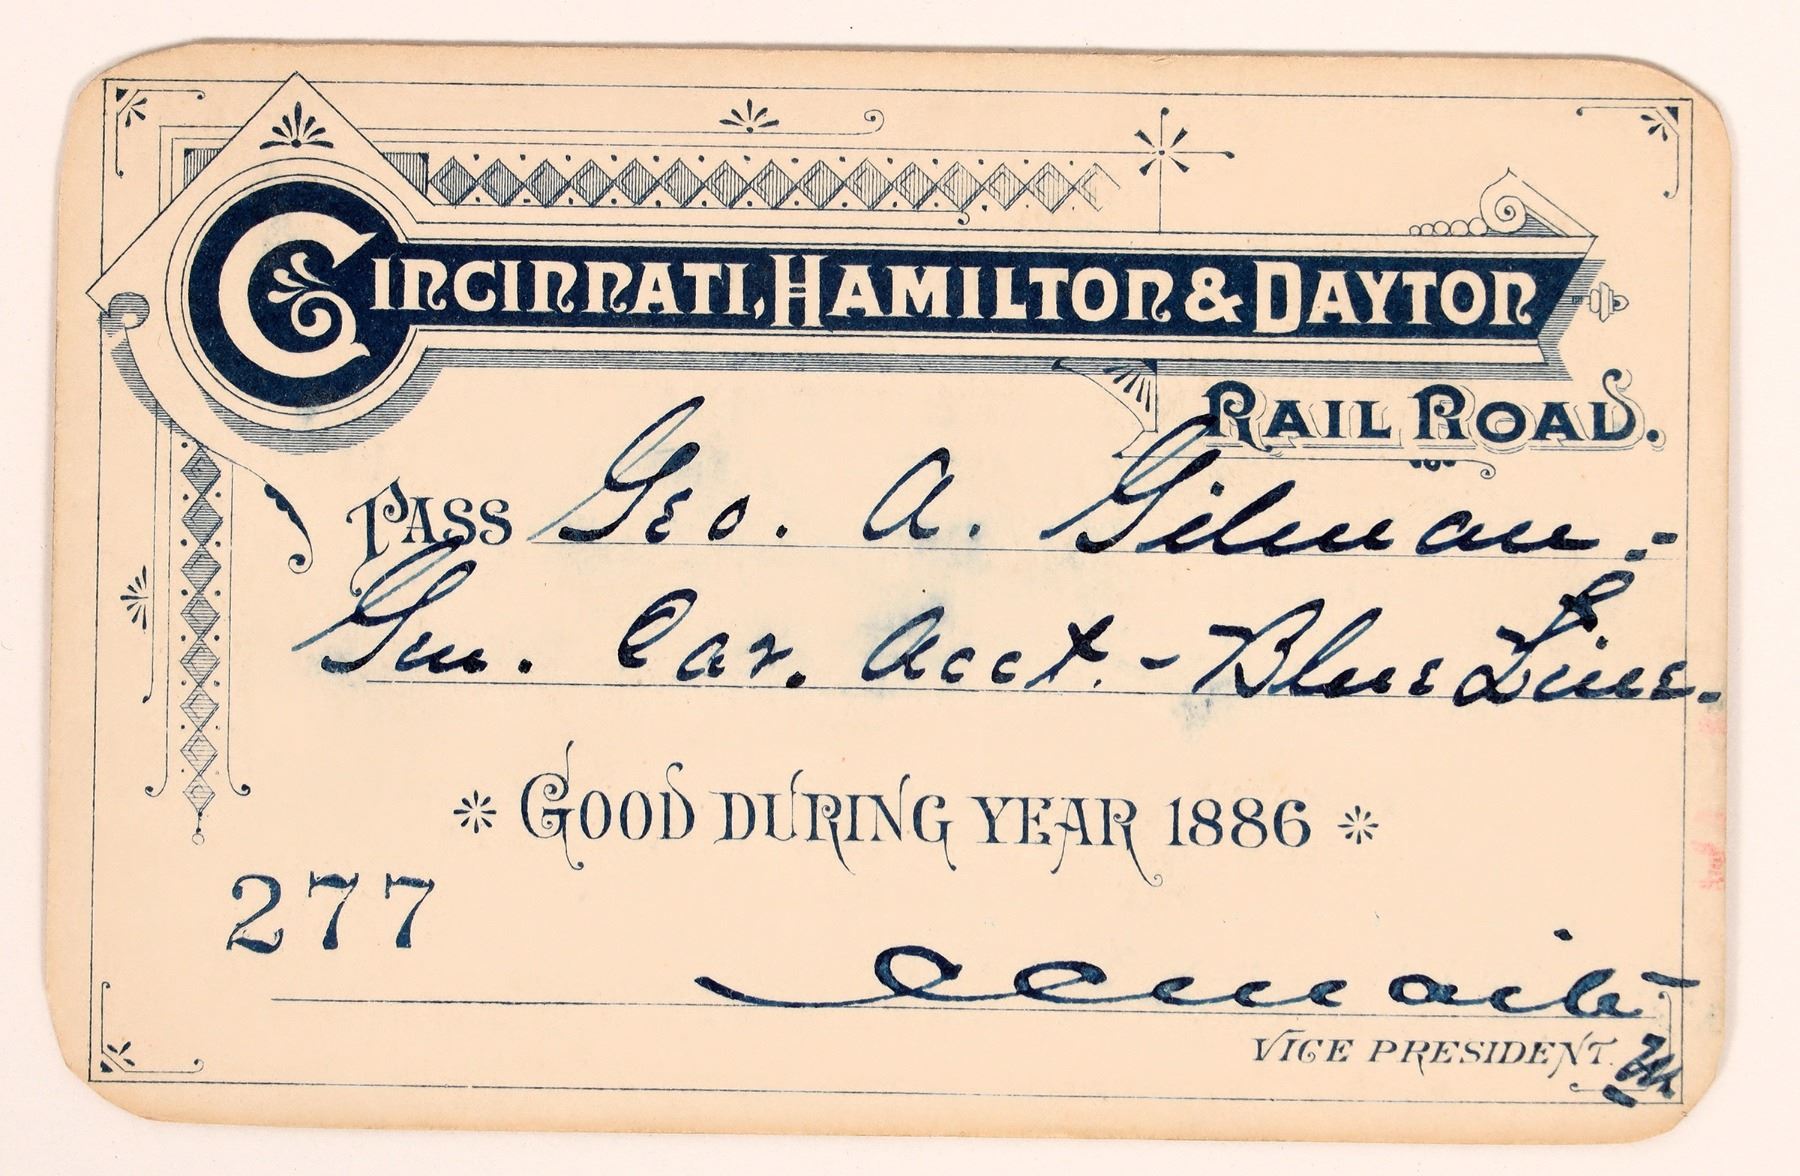 CINCINNATI, HAMILTON & DAYTON
RAIL ROAD.
PASS Geo. A. Gilman.-
Gen. Car. Acct. - Blue Line.
GOOD DURING YEAR 1886
277
VICE PRESIDENT.